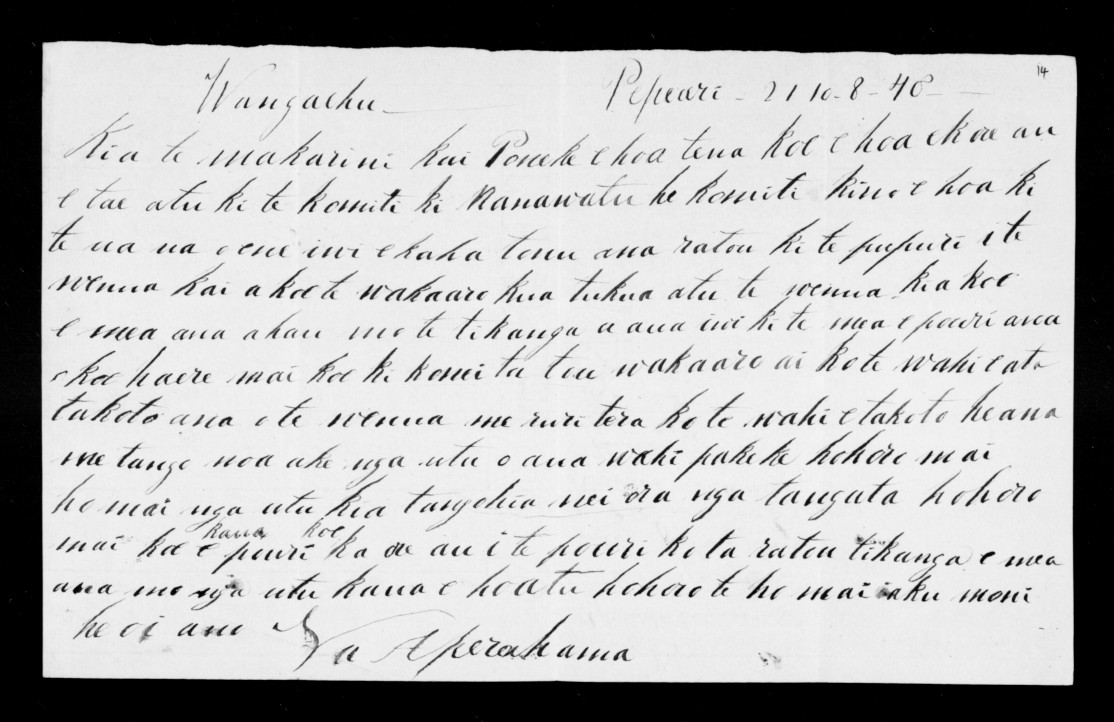 14
Wangaehu Pepueri - 21 10 - 8 - 48
Kia te makarini kai Poneke e hoa tena koe e hoa ekore au
e tae atu ki te komiti ki Manawatu he komiti kino e hoa ki
te ua ua o ene iwi e kaha tonu ana ratou ki te pupuri i te
wenua kai a koe te wakaaro kua tukua atu te wenua kia koe
e mea ana ahau mo te tikanga a aua iwi ki te mea e pouri ana
e koe haere mai koe ki konei ta tou wakaaro ai ko te wahi e ata
takoto ana o te wenua me ruri tera ko te wahi e takoto he ana
me tango noa ake nga utu o aua wahi pakeke hohoro mai
ho mai nga utu kia tangohia nei ora nga tangata hohoro
mai koe kaua koe e pouri ka ore au i te pouri ko ta ratou tikanga e mea
ana mo nga utu kaua e hoatu hohoro te ho mai i aku moni
he oi ano Na Aperahama